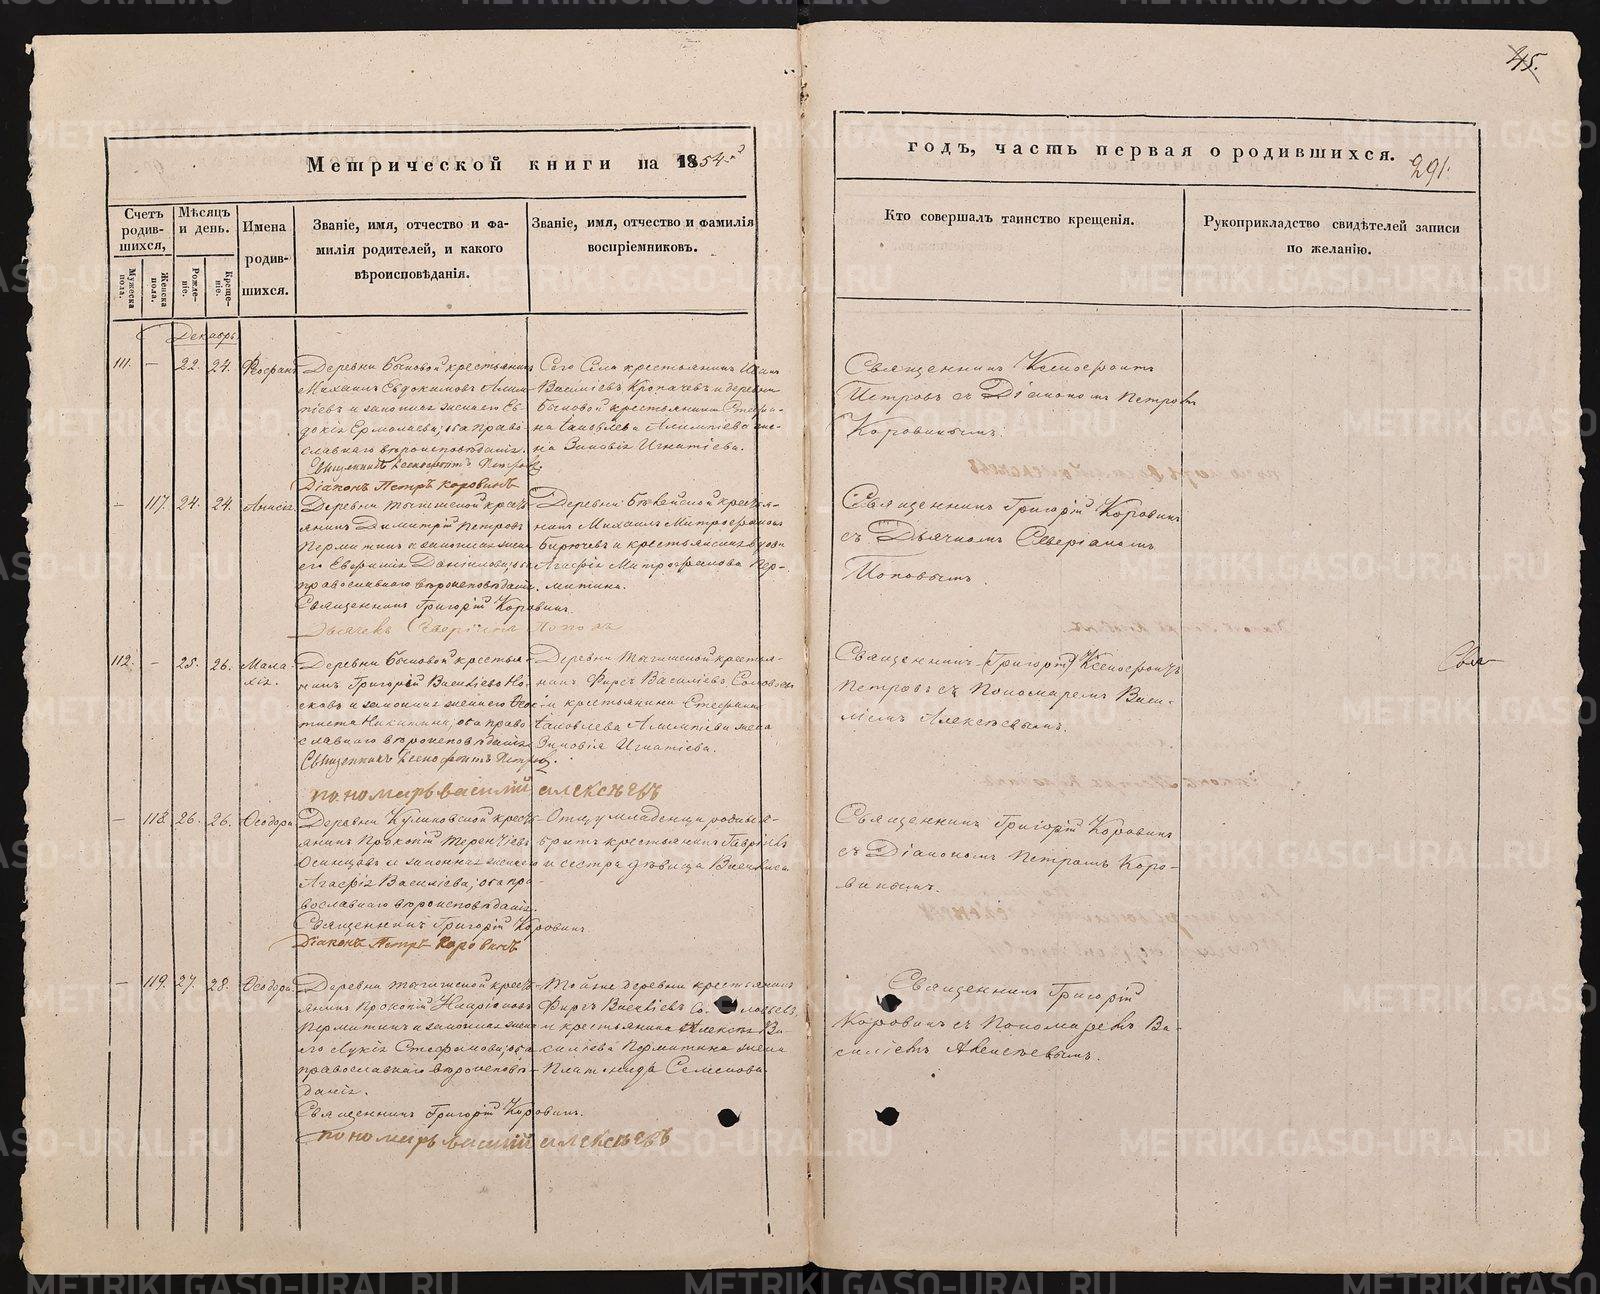 45.
Метрической книги на 1854й
годъ, часть первая о родившихся.
291.
Счетъ родив-шихся,
Мужеска пола.
Женска пола.
Мѣсяцъ и день.
Рожде-ніе.
Креще-ніе.
Имена родив-шихся.
Званіе, имя, отчество и фа-
милія родителей, и какого
вѣроисповѣданія.
Званіе, имя, отчество и фамилія
воспріемниковъ.
Кто совершалъ таинство крещенія.
Рукоприкладство свидѣтелей записи
по желанію.
Декабрь
111. — 22. 24. Ѳеофанъ
Деревни Быковой крестьянинъ
Михаилъ Евдокимовъ Алим-
піевъ и законная жена его Ев-
докія Ермолаева; оба право-
славнаго вѣроисповѣданія.
Священникъ Ксенофонтъ Петровъ
Діаконъ Петръ Коровинъ
Сего Села крестьянинъ Иванъ
Василіевъ Кропачевъ и деревни
Быковой крестьянина Стефа-
на Іаковлева Алимпіева же-
на Зиновія Игнатіева.
Священникъ Ксенофонтъ
Петровъ съ Діакономъ Петромъ
Коровинымъ.
— 117. 24. 24. Анисія
янинъ Димитрій Петровъ
Пермитинъ и законная жена
его Евфимія Даніилова; оба
православнаго вѣроисповѣданія.
Священникъ Григорій Коровинъ.
Дьячекъ Северіанъ Поповъ
нинъ Михаилъ Митрофановъ
Бирючевъ и крестьянская вдова
Агафія Митрофанова Пер-
митина.
Священникъ Григорій Коровинъ
съ Дьячкомъ Северіаномъ
Поповымъ.
112. — 25. 26. Мала-
хія.
Деревни Быковой крестья-
нинъ Григорій Василіевъ Но-
сковъ и законная жена его Ѳеок-
тиста Никитина; оба право-
славнаго вѣроисповѣданія.
Священникъ Ксенофонтъ Петровъ.
пономарь василій алексѣевъ
нинъ Фирсъ Василіевъ Соловьевъ
и крестьянина Стефана
Іаковлева Алимпіева жена
Зиновія Игнатіева.
Священникъ Григорій Ксенофонтъ
Петровъ съ Пономаремъ Васи-
ліемъ Алексѣевымъ.
Свя
— 118. 26. 26. Ѳеодора
Деревни Куликовской кресть-
янинъ Прокопій Терентіевъ
Осинцовъ и законная жена его
Агафія Василіева; оба пра-
вославнаго вѣроисповѣданія.
Священникъ Григорій Коровинъ
Діаконъ Петръ Коровинъ
Отцу младенца родный
братъ крестьянинъ Гавріилъ
и сестра дѣвица Василиса
Священникъ Григорій Коровинъ
съ Діакономъ Петромъ Коро-
винымъ.
— 119. 27. 28. Ѳеодора
янинъ Прокопій Иларіоновъ
Пермитинъ и законная жена
его Лукія Стефанова; оба
православнаго вѣроисповѣ-
данія.
Священникъ Григорій Коровинъ.
пономарь василій алексѣевъ
Той же деревни крестьянинъ
Фирсъ Василіевъ Соловьевъ
и крестьянина Алексѣя Ва-
силіева Пермитина жена
Платонида Семенова
Священникъ Григорій
Коровинъ съ Пономаремъ Ва-
силіемъ Алексѣевымъ.
METRIKI.GASO-URAL.RU